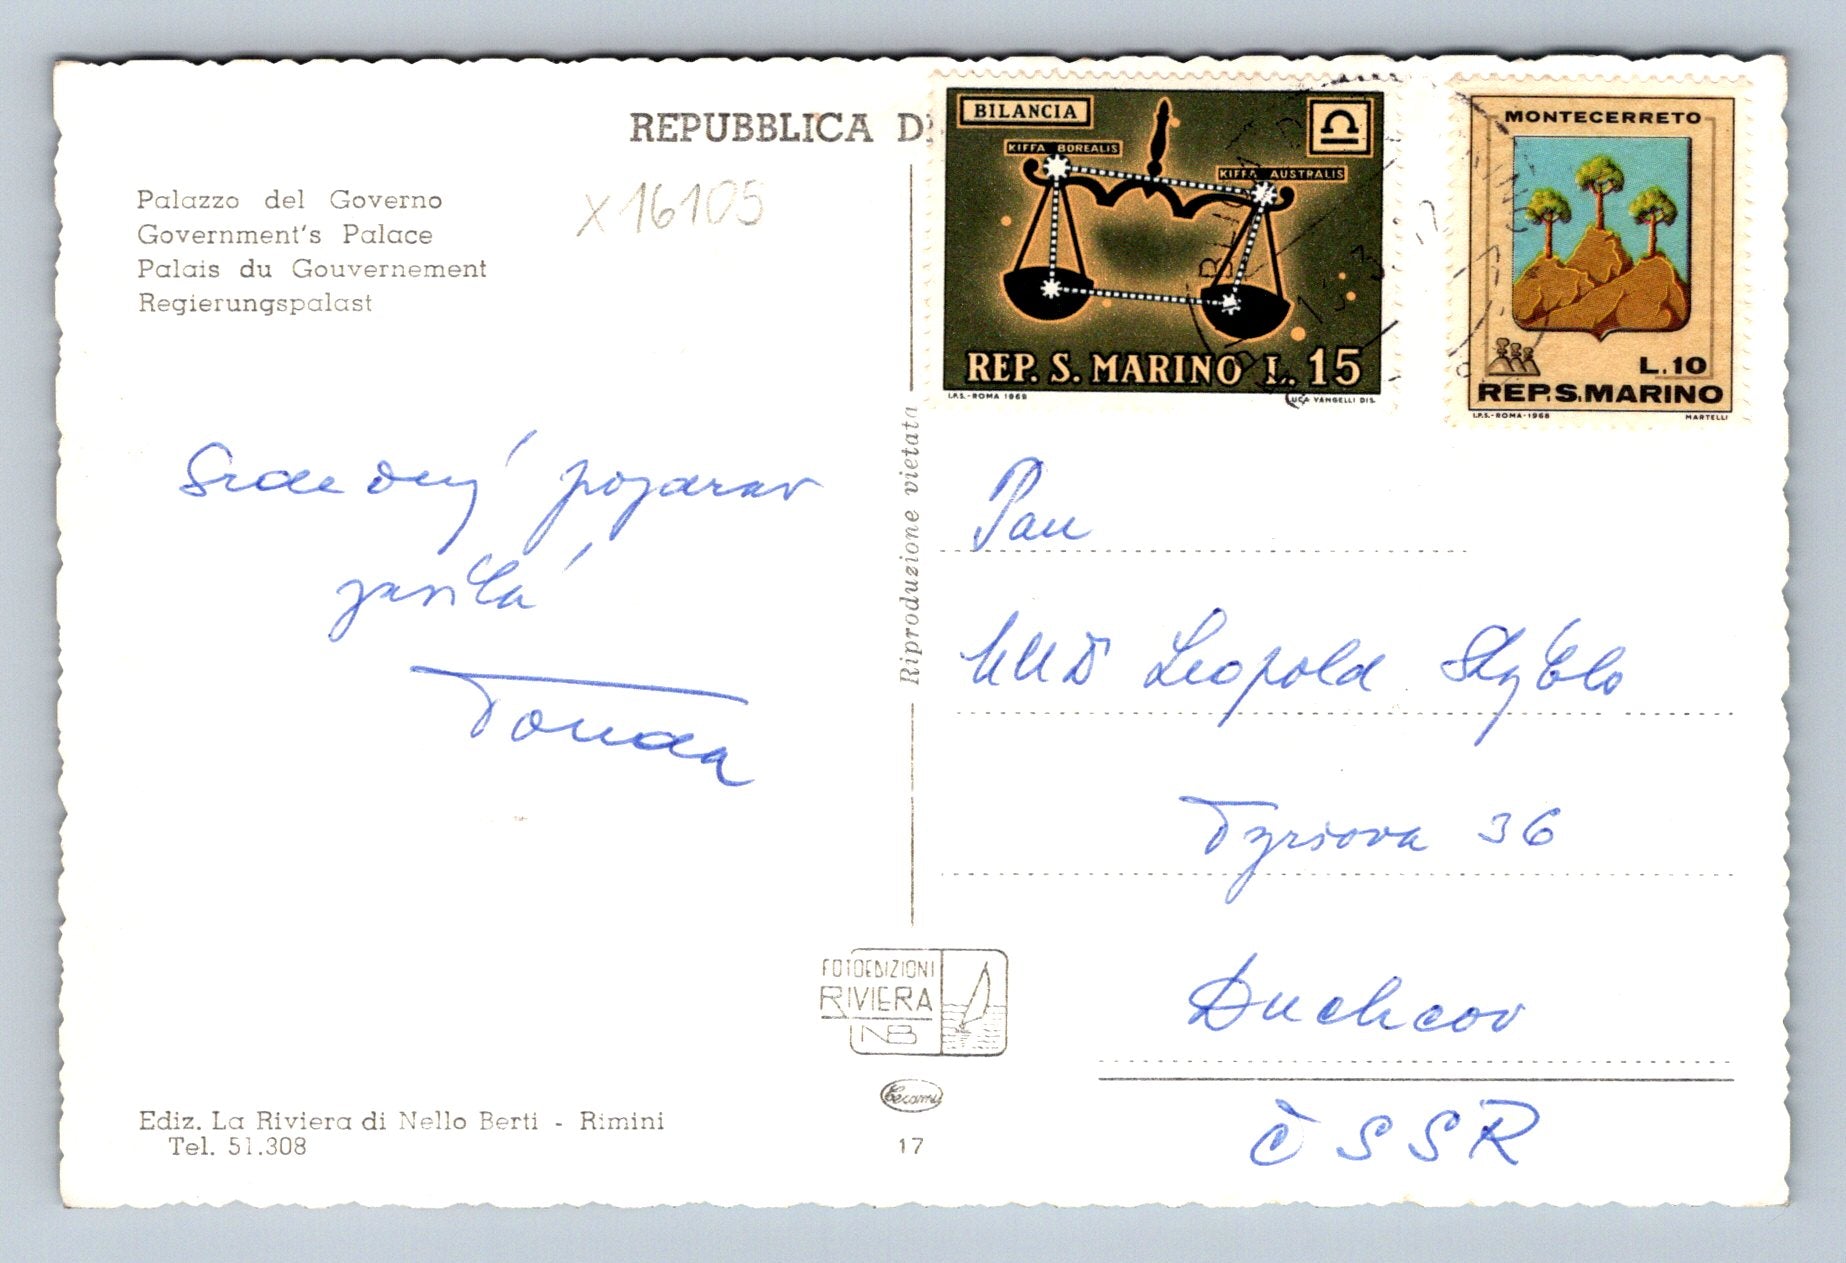 REPUBBLICA DI
Palazzo del Governo
Government's Palace
Palais du Gouvernement
Regierungspalast
X 16105
BILANCIA
KIFFA BOREALIS
KIFFA AUSTRALIS
REP. S. MARINO L. 15
I.P.S. - ROMA 1969
LUCA VANGELLI DIS.
MONTECERRETO
L.10
REP.S.MARINO
I.P.S. - ROMA - 1968
MARTELLI
Srdečný pozdrav
zasílá
Tonda
Riproduzione vietata
Pan
MUDr Leopold Stýblo
Tyršova 36
Duchcov
ČSSR
FOTOEDIZIONI
RIVIERA
NB
Cecami
17
Ediz. La Riviera di Nello Berti - Rimini
Tel. 51.308